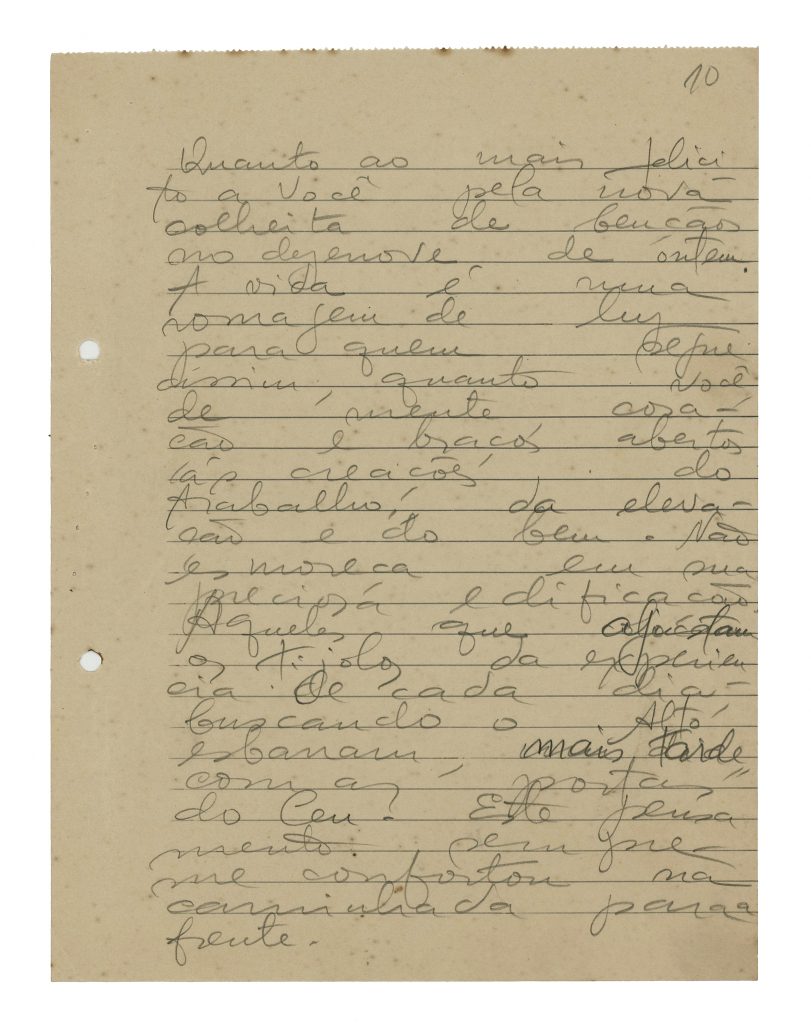 10
Quanto ao mais felici
to a você pela nova
colheita de bençãos
no dezenove de óntem.
A vida é uma
romagem de luz
para quem segue
assim, quanto você
de mente cora-
ção e braços abertos
ás creações do
trabalho, da eleva-
ção e do bem. Não
esmoreça em sua
preciosa edificação
Aqueles que ajustam
os tijolos da experien
cia de cada dia-
buscando o Alto,
esbarram, mais tarde
com as portas
do Ceu. Este pensa
mento sempre
me confortou na
caminhada para a
frente.